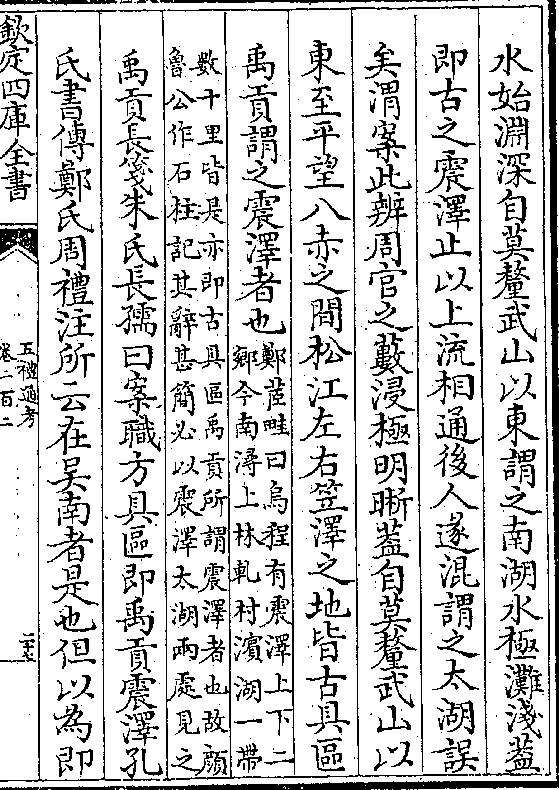 水始淵深自莫釐武山以東謂之南湖水極灘淺蓋
即古之震澤止以上流相通後人遂混謂之太湖誤
矣渭案此辨周官之藪浸極明晰蓋自莫釐武山以
東至平望八赤之間松江左右笠澤之地皆古具區
禹貢謂之震澤者也鄭芷畦曰烏程有震澤上下二
鄉今南潯上林軋村濱湖一帶
數十里皆是亦即古具區禹貢所謂震澤者也故顔
魯公作石柱記其辭甚簡必以震澤太湖兩處見之
禹貢長箋朱氏長孺曰案職方具區即禹貢震澤孔
氏書傳鄭氏周禮注所云在吴南者是也但以為即
欽定四庫全書
五禮通考
卷二百二